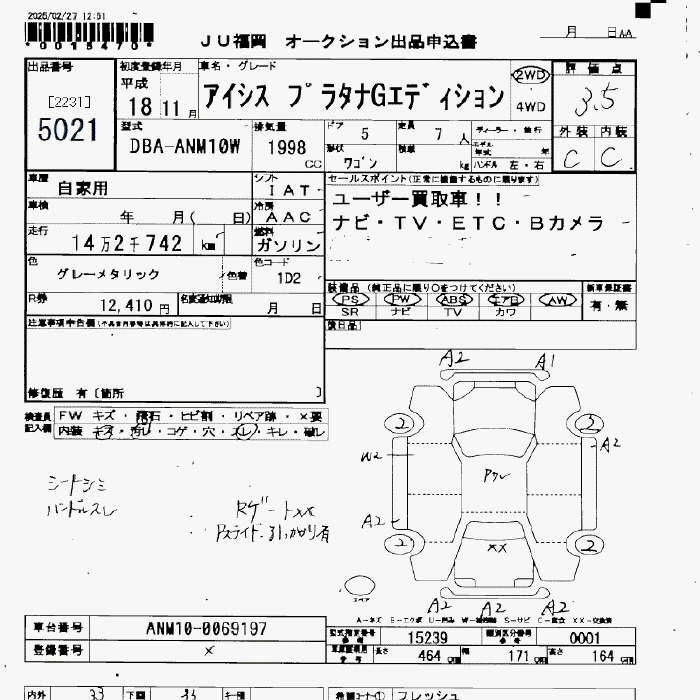 2025/02/27 12:51
*0015470*
JU福岡 オークション出品申込書
月 日 AA
出品番号
[2231]
5021
初度登録年月
平成
18 11 月
車名・グレード
アイシス プラタナGエディション
2WD
4WD
評価点
3.5
外装 内装
C C
型式
DBA-ANM10W
排気量
1998
CC
ドア 5
定員 7 人
形状
ワゴン
積載
kg
ハンドル 左・右
車歴
自家用
シフト
IAT
車検
年 月( 日)
冷房
AAC
走行
14万2千742 km
燃料
ガソリン
色
グレーメタリック
色替
色コード
1D2
R券
12,410 円
名変通知期限
月 日
セールスポイント(正常に機能するものに限ります)
ユーザー買取車!!
ナビ・TV・ETC・Bカメラ
装備品 (純正品に限り○をつけてください)
PS PW ABS エアB AW
SR ナビ TV カワ
新車保証書
有・無
後日品
注意事項申告欄
修復歴 有 〔箇所 〕
検査員
記入欄
FW キズ・飛石・ヒビ割・リペア跡・×要
内装 キズ・汚レ・コゲ・穴・スレ・キレ・破レ
シートシミ
ハンドルスレ
Rゲートxx
Pスライド引っかかり有
A2 A1
2 2
A2
W2
Pクレ
A2
2 2
xx
スペア
A2 A2 A2
車台番号
ANM10-0069197
登録番号
×
型式指定番号
15239
類別区分番号
0001
長さ 464 cm
幅 171 cm
高さ 164 cm
内外 33 下回 33 キー預
希望コーナー① フレッシュ